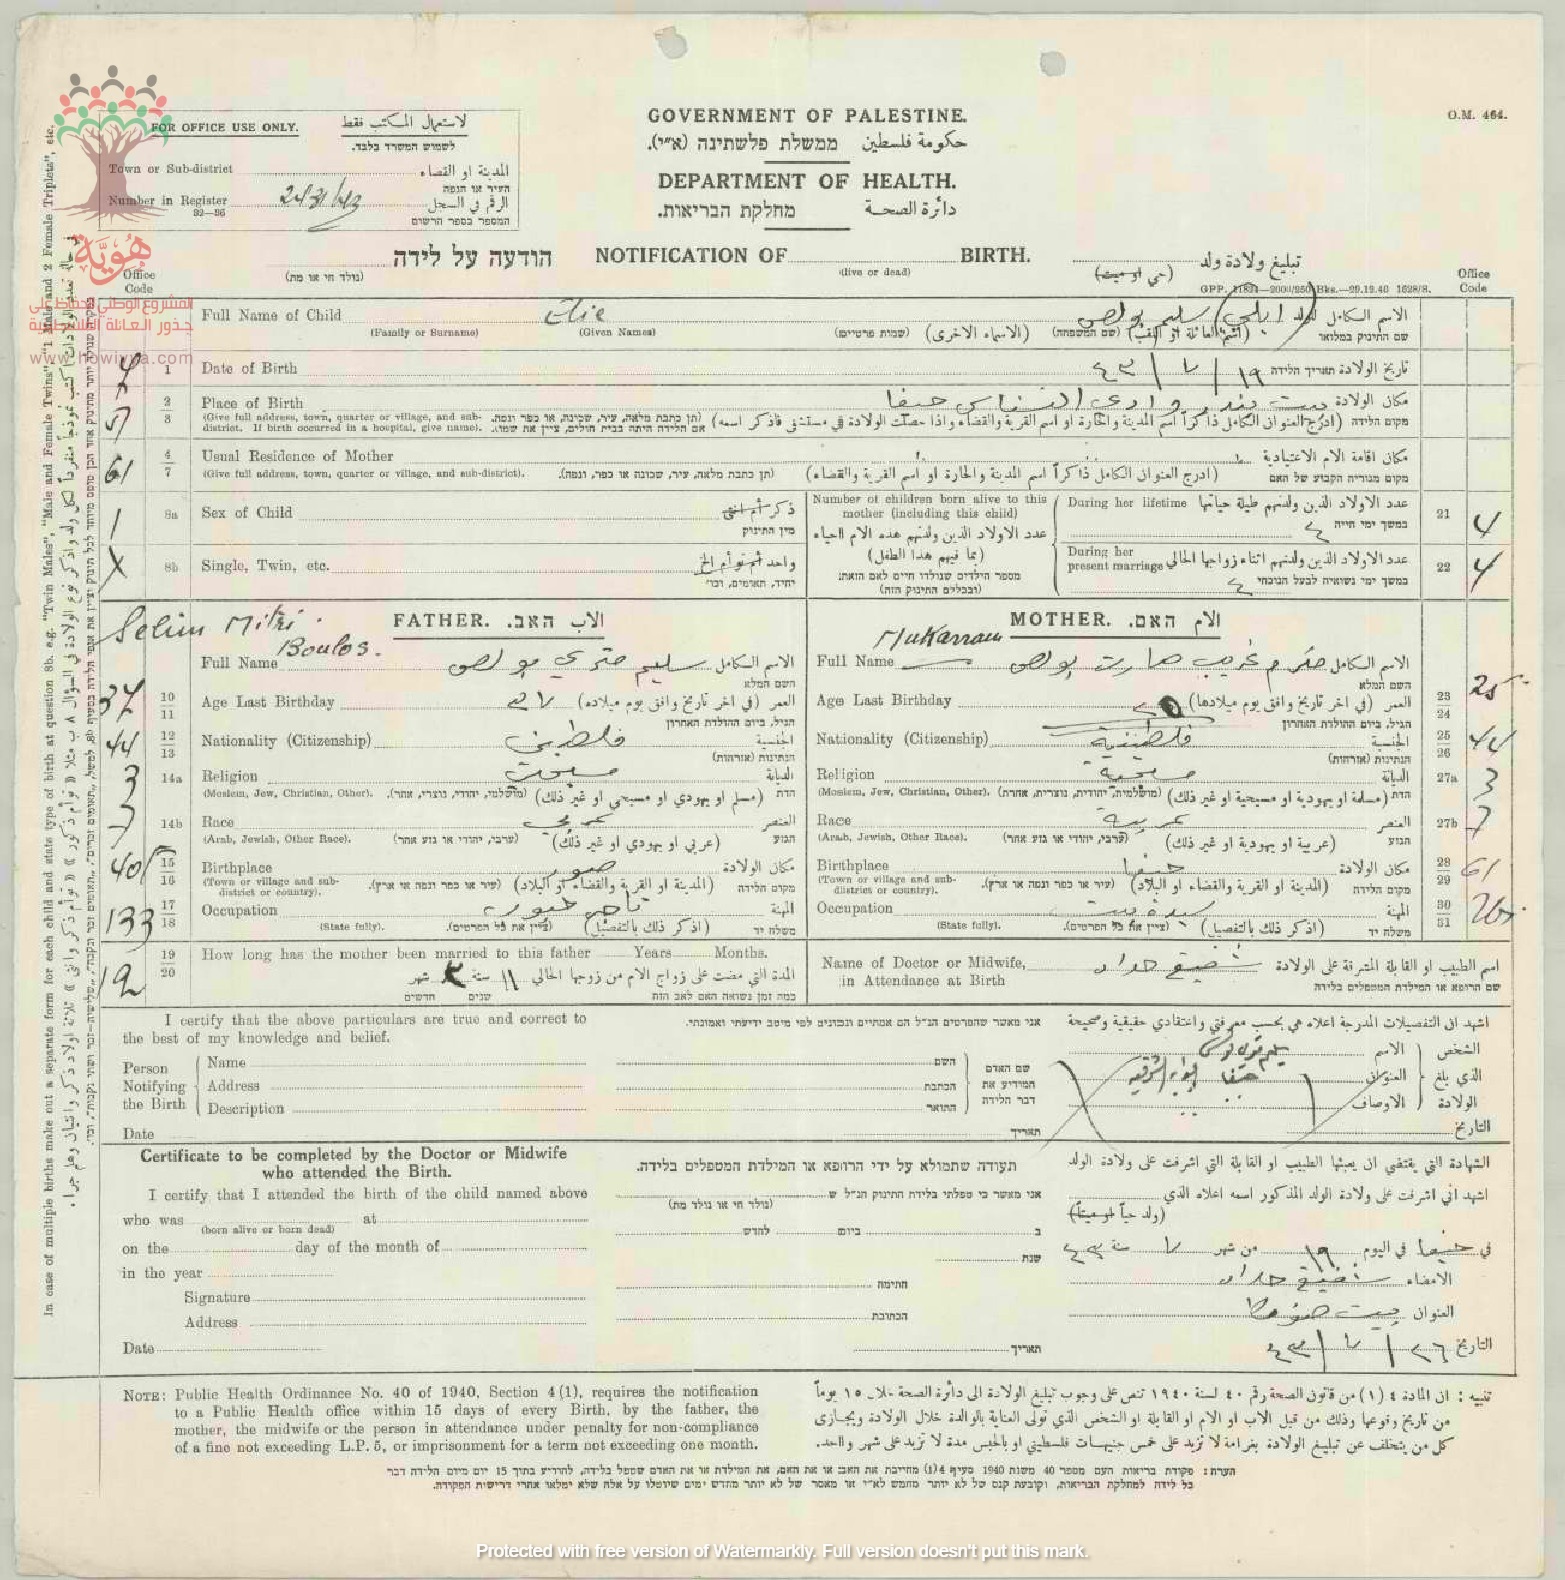 O.M. 464.
FOR OFFICE USE ONLY. لاستعمال المكتب فقط
לשמוש המשרד בלבד.
Town or Sub-district المدينة او القضاء
העיר או הנפה
Number in Register الرقم في السجل
המספר בספר הרשום
GOVERNMENT OF PALESTINE.
حكومة فلسطين ממשלת פלשתינה (א״י).
DEPARTMENT OF HEALTH.
دائرة الصحة מחלקת הבריאות.
هُوِيَّة
المشروع الوطني للحفاظ على
جذور العائلة الفلسطينية
www.howiyya.com
הודעה על לידה NOTIFICATION OF BIRTH. تبليغ ولادة ولد
(נולד חי או מת) (live or dead) (حي او ميت)
GPP. 11831—2000/250 Bks.—29.12.40 1628/8.
Office Code
Office Code
Full Name of Child Elie الاسم الكامل للولد (ايلي) سليم بولص
(Family or Surname) (Given Names) (שמות פרטיים) (الاسماء الاخرى) (שם המשפחה) (اسم العائلة او اللقب) שם התינוק במלואו
1 Date of Birth تاريخ الولادة תאריך הלידה ١٩ / ٧ / ٤٣
2 3 Place of Birth مكان الولادة وادي النسناس حيفا
(Give full address, town, quarter or village, and sub-district. If birth occurred in a hospital, give name).
(תן כתבת מלאה, עיר, שכונה, או כפר ונפה. אם הלידה היתה בבית חולים, ציין את שמו.
(ادرج العنوان الكامل ذاكراً اسم المدينة والحارة او اسم القرية والقضاء واذا حصلت الولادة في مستشفى فاذكر اسمه) מקום הלידה
4 7 Usual Residence of Mother مكان اقامة الام الاعتيادية
(Give full address, town, quarter or village, and sub-district). (תן כתבת מלאה, עיר, שכונה או כפר, ונפה). (ادرج العنوان الكامل ذاكراً اسم المدينة والحارة او اسم القرية والقضاء) מקום מגוריה הקבוע של האם
61
8a Sex of Child ذكر ام انثى
מין התינוק
1
8b Single, Twin, etc. واحد ام توأم الخ
יחיד, תאומים, וכו׳
X
Number of children born alive to this mother (including this child)
عدد الاولاد الذين ولدتهم هذه الام احياء
(بما فيهم هذا الطفل)
מספר הילדים שנולדו חיים לאם הזאת:
(ובכללם התינוק הזה)
During her lifetime عدد الاولاد الذين ولدتهم طيلة حياتها 21 4
במשך ימי חייה ٤
During her present marriage عدد الاولاد الذين ولدتهم اثناء زواجها الحالي 22 4
במשך ימי נשואיה לבעל הנוכחי ٤
Selim Mitri Boulos.
FATHER. الاب האב.
Full Name الاسم الكامل سليم متري بولص
השם המלא
37 10 11 Age Last Birthday العمر (في اخر تاريخ وافق يوم ميلاده) ٣٧
הגיל, ביום ההולדת האחרון
44 12 13 Nationality (Citizenship) الجنسية فلسطيني
הנתינות (אזרחות)
3 14a Religion الديانة مسيحي
(Moslem, Jew, Christian, Other). (מושלמי, יהודי, נוצרי, אחר). (مسلم او يهودي او مسيحي او غير ذلك) הדת
7 14b Race العنصر عربي
(Arab, Jewish, Other Race). (ערבי, יהודי או גזע אחר) (عربي او يهودي او غير ذلك) הגזע
40 15 16 Birthplace مكان الولادة صور
(Town or village and sub-district or country). (עיר או כפר ונפה או ארץ). (المدينة او القرية والقضاء او البلاد) מקום הלידה
133 17 18 Occupation المهنة تاجر
(State fully). (ציין את כל הפרטים). (اذكر ذلك بالتفصيل) משלח יד
MOTHER. الام האם.
Mukarram
Full Name الاسم الكامل بولص
השם המלא
Age Last Birthday العمر (في اخر تاريخ وافق يوم ميلادها) 23 24 25
הגיל, ביום ההולדת האחרון
Nationality (Citizenship) الجنسية فلسطينية 25 26 44
הנתינות (אזרחות)
Religion الديانة مسيحية 27a 3
(Moslem, Jew, Christian, Other). (מושלמית, יהודית, נוצרית, אחרת) (مسلمة او يهودية او مسيحية او غير ذلك) הדת
Race العنصر عربية 27b 7
(Arab, Jewish, Other Race). (ערבי, יהודי או גזע אחר) (عربية او يهودية او غير ذلك) הגזע
Birthplace مكان الولادة حيفا 28 29 61
(Town or village and sub-district or country). (עיר או כפר ונפה או ארץ). (المدينة او القرية والقضاء او البلاد) מקום הלידה
Occupation المهنة سيدة بيت 30 31
(State fully). (ציין את כל הפרטים). (اذكر ذلك بالتفصيل) משלח יד
19 20 How long has the mother been married to this father Years Months.
المدة التي مضت على زواج الام من زوجها الحالي ١١ سنة شهر
כמה זמן נשואה האם לאב הזה שנים חדשים
Name of Doctor or Midwife, in Attendance at Birth
اسم الطبيب او القابلة المشرفة على الولادة شفيق حداد
שם הרופא או המילדת המטפלים בלידה
I certify that the above particulars are true and correct to the best of my knowledge and belief.
אני מאשר שהפרטים הנ״ל הם אמתיים ונכונים לפי מיטב ידיעתי ואמונתי.
اشهد ان التفصيلات المدرجة اعلاه هي بحسب معرفتي واعتقادي حقيقية وصحيحة
Person Notifying the Birth
Name השם
Address הכתבת
Description התואר
שם האדם המודיע את דבר הלידה
الشخص الذي بلغ الولادة
الاسم
العنوان حيفا
الاوصاف
Date תאריך التاريخ
Certificate to be completed by the Doctor or Midwife who attended the Birth.
תעודה שתמולא על ידי הרופא או המילדת המטפלים בלידה.
الشهادة التي يقتضي ان يعبئها الطبيب او القابلة التي اشرفت على ولادة الولد
I certify that I attended the birth of the child named above
אני מאשר כי טפלתי בלידת התינוק הנ״ל ש
(נולד חי או נולד מת)
اشهد اني اشرفت على ولادة الولد المذكور اسمه اعلاه الذي
(ولد حياً او ميتاً)
who was at
(born alive or born dead)
on the day of the month of ב ביום לחדש
في حيفا في اليوم ١٩ من شهر ٧ سنة ٤٣
in the year שנת
Signature חתימה الامضاء شفيق حداد
Address הכתובת العنوان
Date תאריך التاريخ ٢٦ / ٧ / ٤٣
NOTE: Public Health Ordinance No. 40 of 1940, Section 4(1), requires the notification
to a Public Health office within 15 days of every Birth, by the father, the
mother, the midwife or the person in attendance under penalty for non-compliance
of a fine not exceeding L.P. 5, or imprisonment for a term not exceeding one month.
تنبيه : ان المادة ٤ (١) من قانون الصحة رقم ٤٠ لسنة ١٩٤٠ تنص على وجوب تبليغ الولادة الى دائرة الصحة خلال ١٥ يوماً
من تاريخ وقوعها وذلك من قبل الاب او الام او القابلة او الشخص الذي تولى العناية بالوالدة خلال الولادة ويجازى
كل من يتخلف عن تبليغ الولادة بغرامة لا تزيد على خمس جنيهات فلسطيني او بالحبس مدة لا تزيد على شهر واحد.
הערה: פקודת בריאות העם מספר 40 משנת 1940 סעיף 4(1) מחייבת את האב או את האם, את המילדת או את האדם שטפל בלידה, להודיע בתוך 15 יום מיום הלידה דבר
כל לידה למחלקת הבריאות, וקובעת קנס של לא יותר מחמש לא״י או מאסר של לא יותר מחדש ימים שיוטלו על אלה שלא ימלאו אחרי דרישות הפקודה.
In case of multiple births make out a separate form for each child and state type of birth at question 8b. eg. "Twin Males", "Male and Female Twins", "1 Male and 2 Female Triplets", etc.
Protected with free version of Watermarkly. Full version doesn't put this mark.